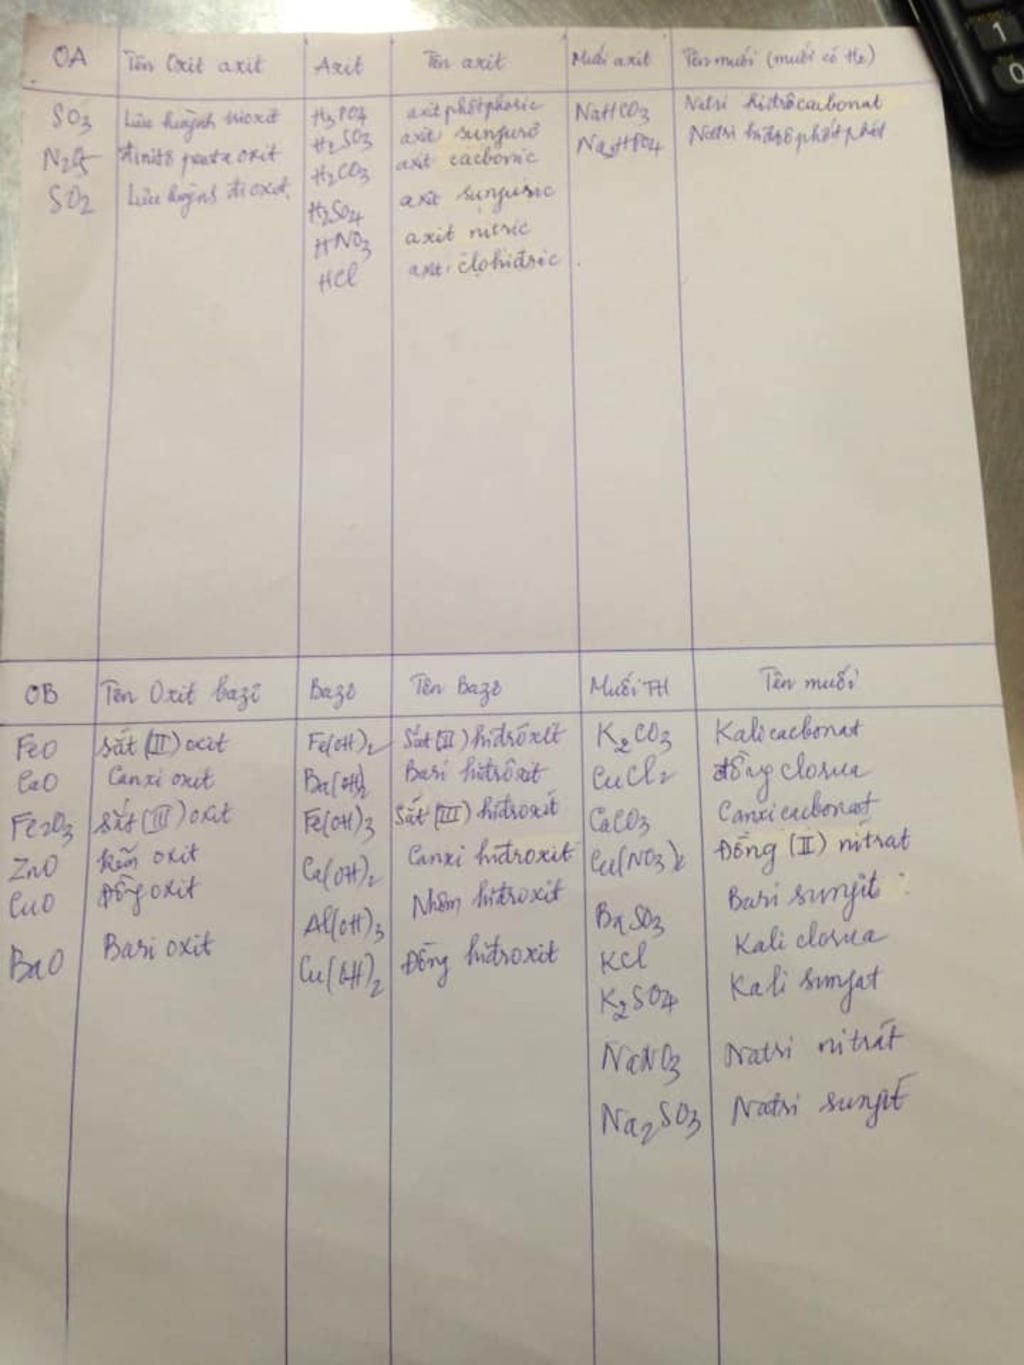 1
0
OA Tên Oxit axit Axit Tên axit Muối axit Tên muối (muối có H₂)
SO₃ Lưu huỳnh trioxit H₃PO₄ axit phôtphoric NaHCO₃ Natri hiđrôcacbonat
N₂O₅ đinitơ penta oxit H₂SO₃ axit sunfurơ Na₂HPO₄ Natri hiđrôphôtphát
SO₂ Lưu huỳnh đioxit. H₂CO₃ axit cacbonic
H₂SO₄ axit sunfuric
HNO₃ axit nitric
HCl axit clohiđric.
OB Tên Oxit bazơ Bazơ Tên Bazơ Muối TH Tên muối
FeO sắt (II) oxit Fe(OH)₂ Sắt (II) hiđrôxit K₂CO₃ Kali cacbonat
CaO Canxi oxit Ba(OH)₂ Bari hiđrôxit CuCl₂ đồng clorua
Fe₂O₃ sắt (III) oxit Fe(OH)₃ Sắt (III) hiđroxit CaCO₃ Canxi cacbonat
ZnO kẽm oxit Ca(OH)₂ Canxi hiđroxit Cu(NO₃)₂ Đồng (II) nitrat
CuO Đồng oxit Al(OH)₃ Nhôm hiđroxit BaSO₃ Bari sunfit
BaO Bari oxit Cu(OH)₂ Đồng hiđroxit KCl Kali clorua
K₂SO₄ Kali sunfat
NaNO₃ Natri nitrát
Na₂SO₃ Natri sunfit